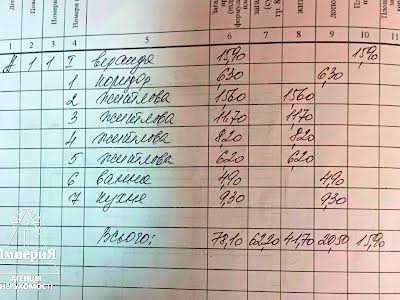 1 2 3 4 5 6 7 8 9 10 11
А 1 1 I веранда 15,90 15,90
1 коридор 6,30 6,30
2 житлова 15,60 15,60
3 житлова 11,70 11,70
4 житлова 8,20 8,20
5 житлова 6,20 6,20
6 ванна 4,90 4,90
7 кухне 9,30 9,30
Всього: 78,10 62,20 41,70 20,50 15,90
ІмпериЯ
АГЕНЦІЯ
НЕРУХОМОСТІ